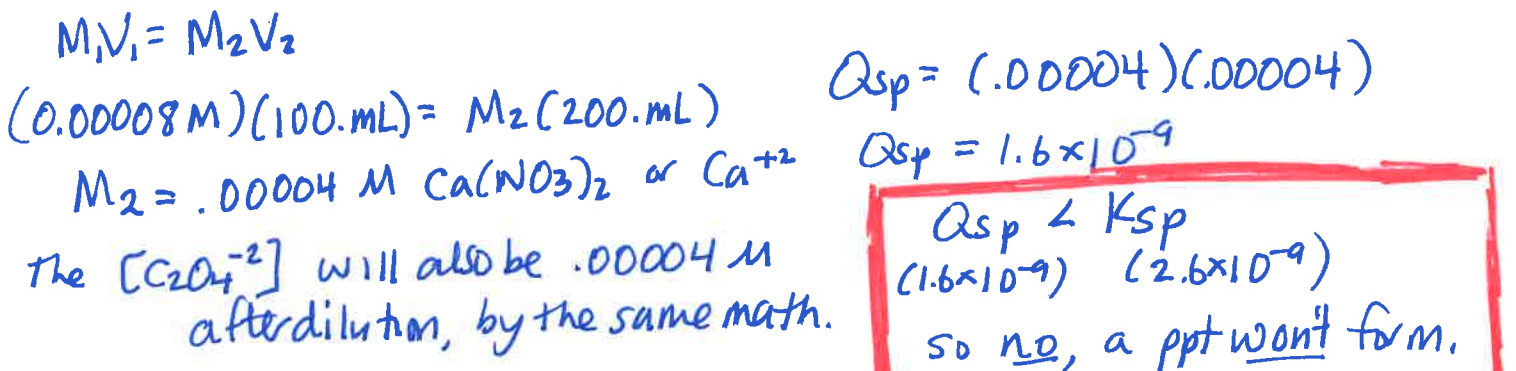 M₁V₁ = M₂V₂
(0.00008 M)(100. mL) = M₂(200. mL)
M₂ = .00004 M Ca(NO₃)₂ or Ca⁺²
The [C₂O₄⁻²] will also be .00004 M
after dilution, by the same math.
Qsp = (.00004)(.00004)
Qsp = 1.6×10⁻⁹
Qsp < Ksp
(1.6×10⁻⁹) (2.6×10⁻⁹)
so no, a ppt won't form.